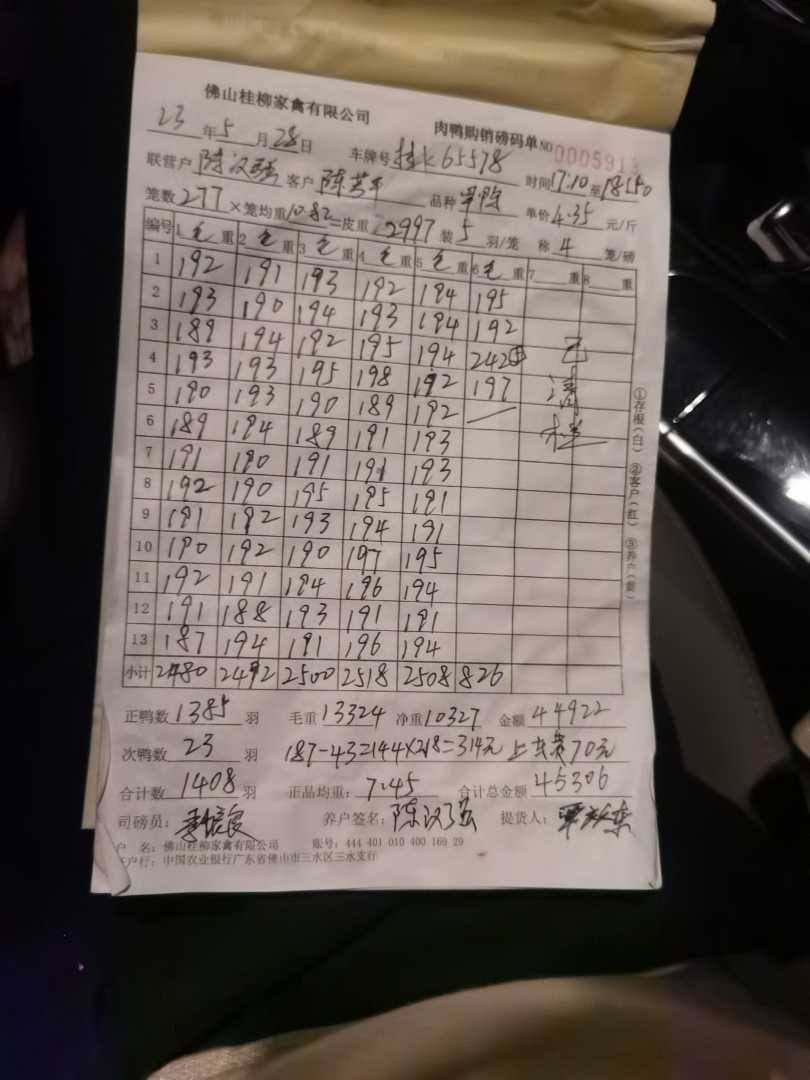 佛山桂柳家禽有限公司
肉鸭购销磅码单 NO 000591
23 年 5 月 28 日 车牌号 65578 时间 17:10 至 18:50
联营户 陈汉强 客户 陈芳平 品种 单价 4.35 元/斤
笼数 277 ×笼均重 10.82 =皮重 2997 装 5 羽/笼 称 4 笼/磅
编号 1 毛 重 2 毛 重 3 毛 重 4 毛 重 5 毛 重 6 毛 重 7 重 8 重
1 192 191 193 192 194 195
2 193 190 194 193 194 192
3 189 194 192 195 194 242 已
4 193 193 195 198 192 197 清
5 190 193 190 189 192 —
6 189 194 189 191 193
7 191 190 191 191 193
8 192 190 195 195 191
9 191 192 193 194 191
10 190 192 190 197 195
11 192 191 194 196 194
12 191 188 193 191 191
13 187 194 191 196 194
小计 2480 2492 2500 2518 2508 826
①存根(白) ②客户(红) ③养户(黄)
正鸭数 1385 羽 毛重 13324 净重 10327 金额 44922
次鸭数 23 羽 187-43=144×218=314元 上车费70元
合计数 1408 羽 正品均重: 7.45 合计总金额 45306
司磅员: 养户签名: 陈汉强 提货人:
户 名: 佛山桂柳家禽有限公司 账号: 444 401 010 400 169 29
户行: 中国农业银行广东省佛山市三水区三水支行